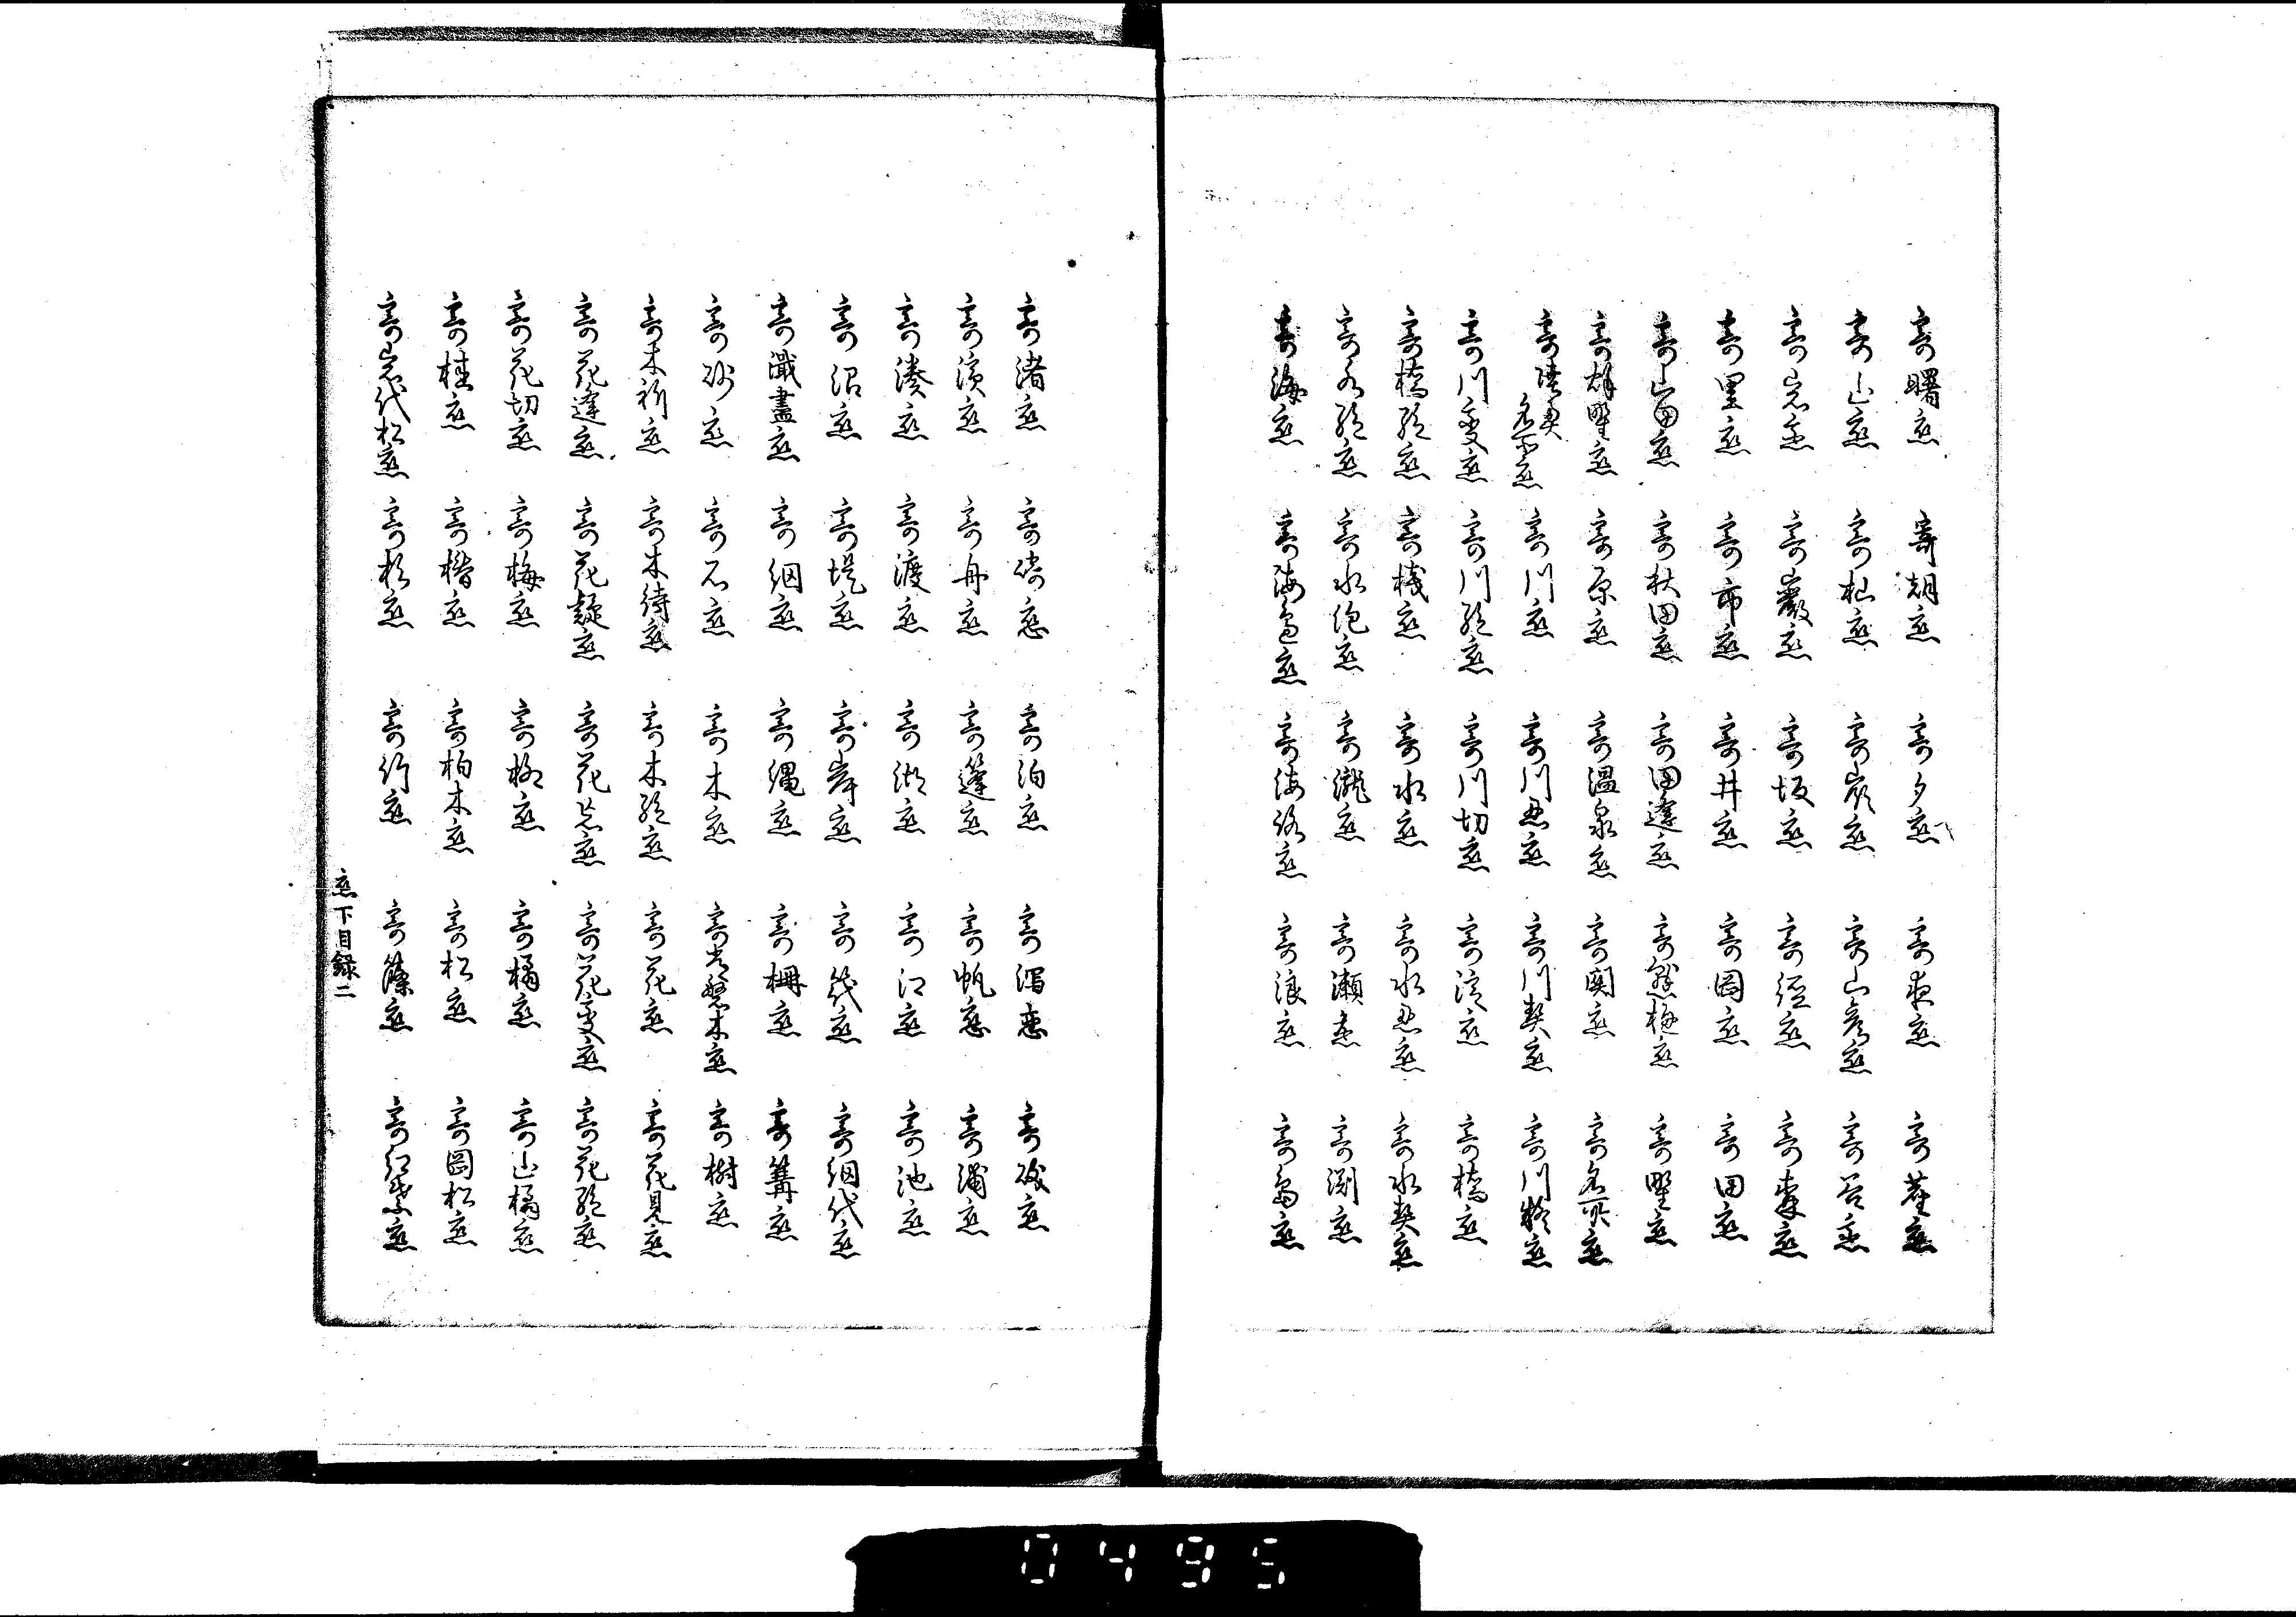 寄曙恋 寄朝恋 寄夕恋 寄夜恋 寄莚恋
寄山恋 寄杣恋 寄嶺恋 寄山彦恋 寄谷恋
寄岩恋 寄巌恋 寄坂恋 寄径恋 寄森恋
寄里恋 寄市恋 寄井恋 寄岡恋 寄田恋
寄山田恋 寄秋田恋 寄田逢恋 寄野恋
寄野恋 寄原恋 寄温泉恋 寄関恋 寄名所恋
寄川恋 寄川忍恋 寄川契恋 寄川恋
寄川変恋 寄川絶恋 寄川切恋 寄橋恋
寄橋絶恋 寄桟恋 寄水恋 寄水忍恋 寄水契恋
寄水絶恋 寄水泡恋 寄瀧恋 寄瀬恋 寄渕恋
寄海恋 寄海辺恋 寄海路恋 寄浪恋 寄嶋恋
寄渚恋 寄泊恋 寄潟恋 寄磯恋
寄濱恋 寄舟恋 寄篷恋 寄帆恋 寄浦恋
寄湊恋 寄渡恋 寄湖恋 寄江恋 寄池恋
寄沼恋 寄堤恋 寄岸恋 寄筏恋 寄網代恋
寄瀛盡恋 寄網恋 寄縄恋 寄柵恋 寄篝恋
寄砂恋 寄石恋 寄木恋 寄常盤木恋 寄樹恋
寄木祈恋 寄木待恋 寄木絶恋 寄花恋 寄花見恋
寄花逢恋 寄花疑恋 寄花忘恋 寄花変恋 寄花絶恋
寄花切恋 寄梅恋 寄柳恋 寄橘恋 寄山橘恋
寄桂恋 寄楷恋 寄柏木恋 寄松恋 寄岡松恋
寄岩代松恋 寄杉恋 寄竹恋 寄篠恋 寄紅葉恋
恋下目録二
0495